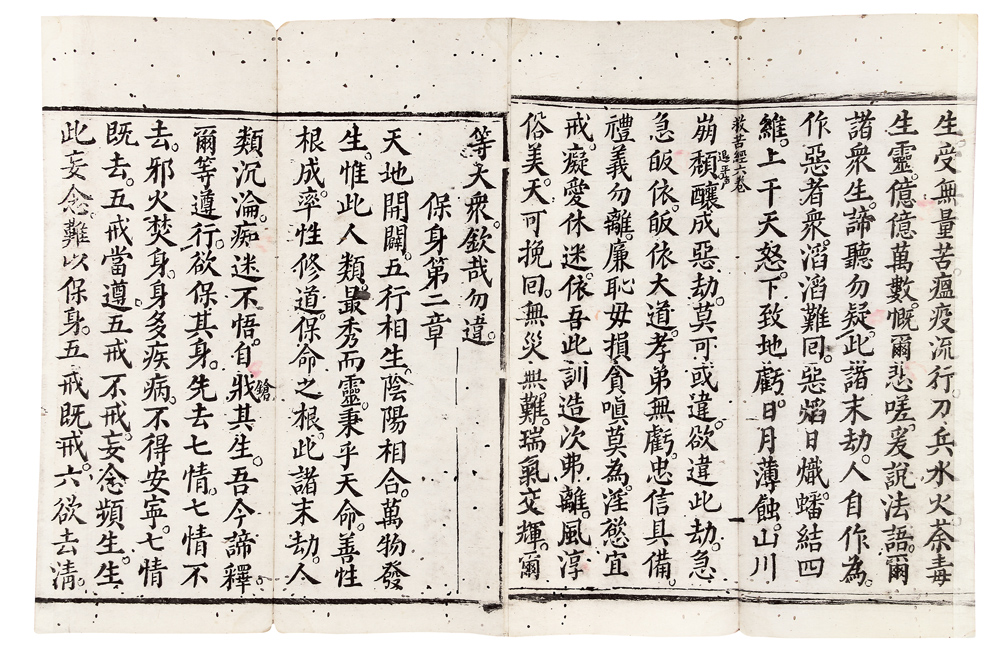 生。受無量苦。瘟疫流行。刀兵水火。荼毒
生靈。億億萬數。慨爾悲嗟。爰說法語。爾
諸衆生。諦聽勿疑。此諸末劫。人自作為。
作惡者衆。滔滔難回。惡熖日熾。蟠結四
維。上干天怒。下致地虧。日月薄蝕。山川
救苦經六卷
崩頽。釀成惡劫。莫可或違。欲違此劫。急
急皈依。皈依大道。孝弟無虧。忠信具備。
禮義勿離。廉恥毋損。貪嗔莫為。淫慾宜
戒。癡愛休迷。依吾此訓。造次弗離。風淳
俗美。天可挽回。無災無難。瑞氣交輝。爾
等大衆。欽哉勿違。
保身第二章
天地開闢。五行相生。陰陽相合。萬物發
生。惟此人類。最秀而靈。秉乎天命。善性
根成。率性修道。保命之根。此諸末劫。人
類沉淪。痴迷不悟。自戕其生。吾今諦釋。
鎗
爾等遵行。欲保其身。先去七情。七情不
去。邪火焚身。身多疾病。不得安寧。七情
既去。五戒當遵。五戒不戒。妄念頻生。生
此妄念。難以保身。五戒既戒。六欲去清。